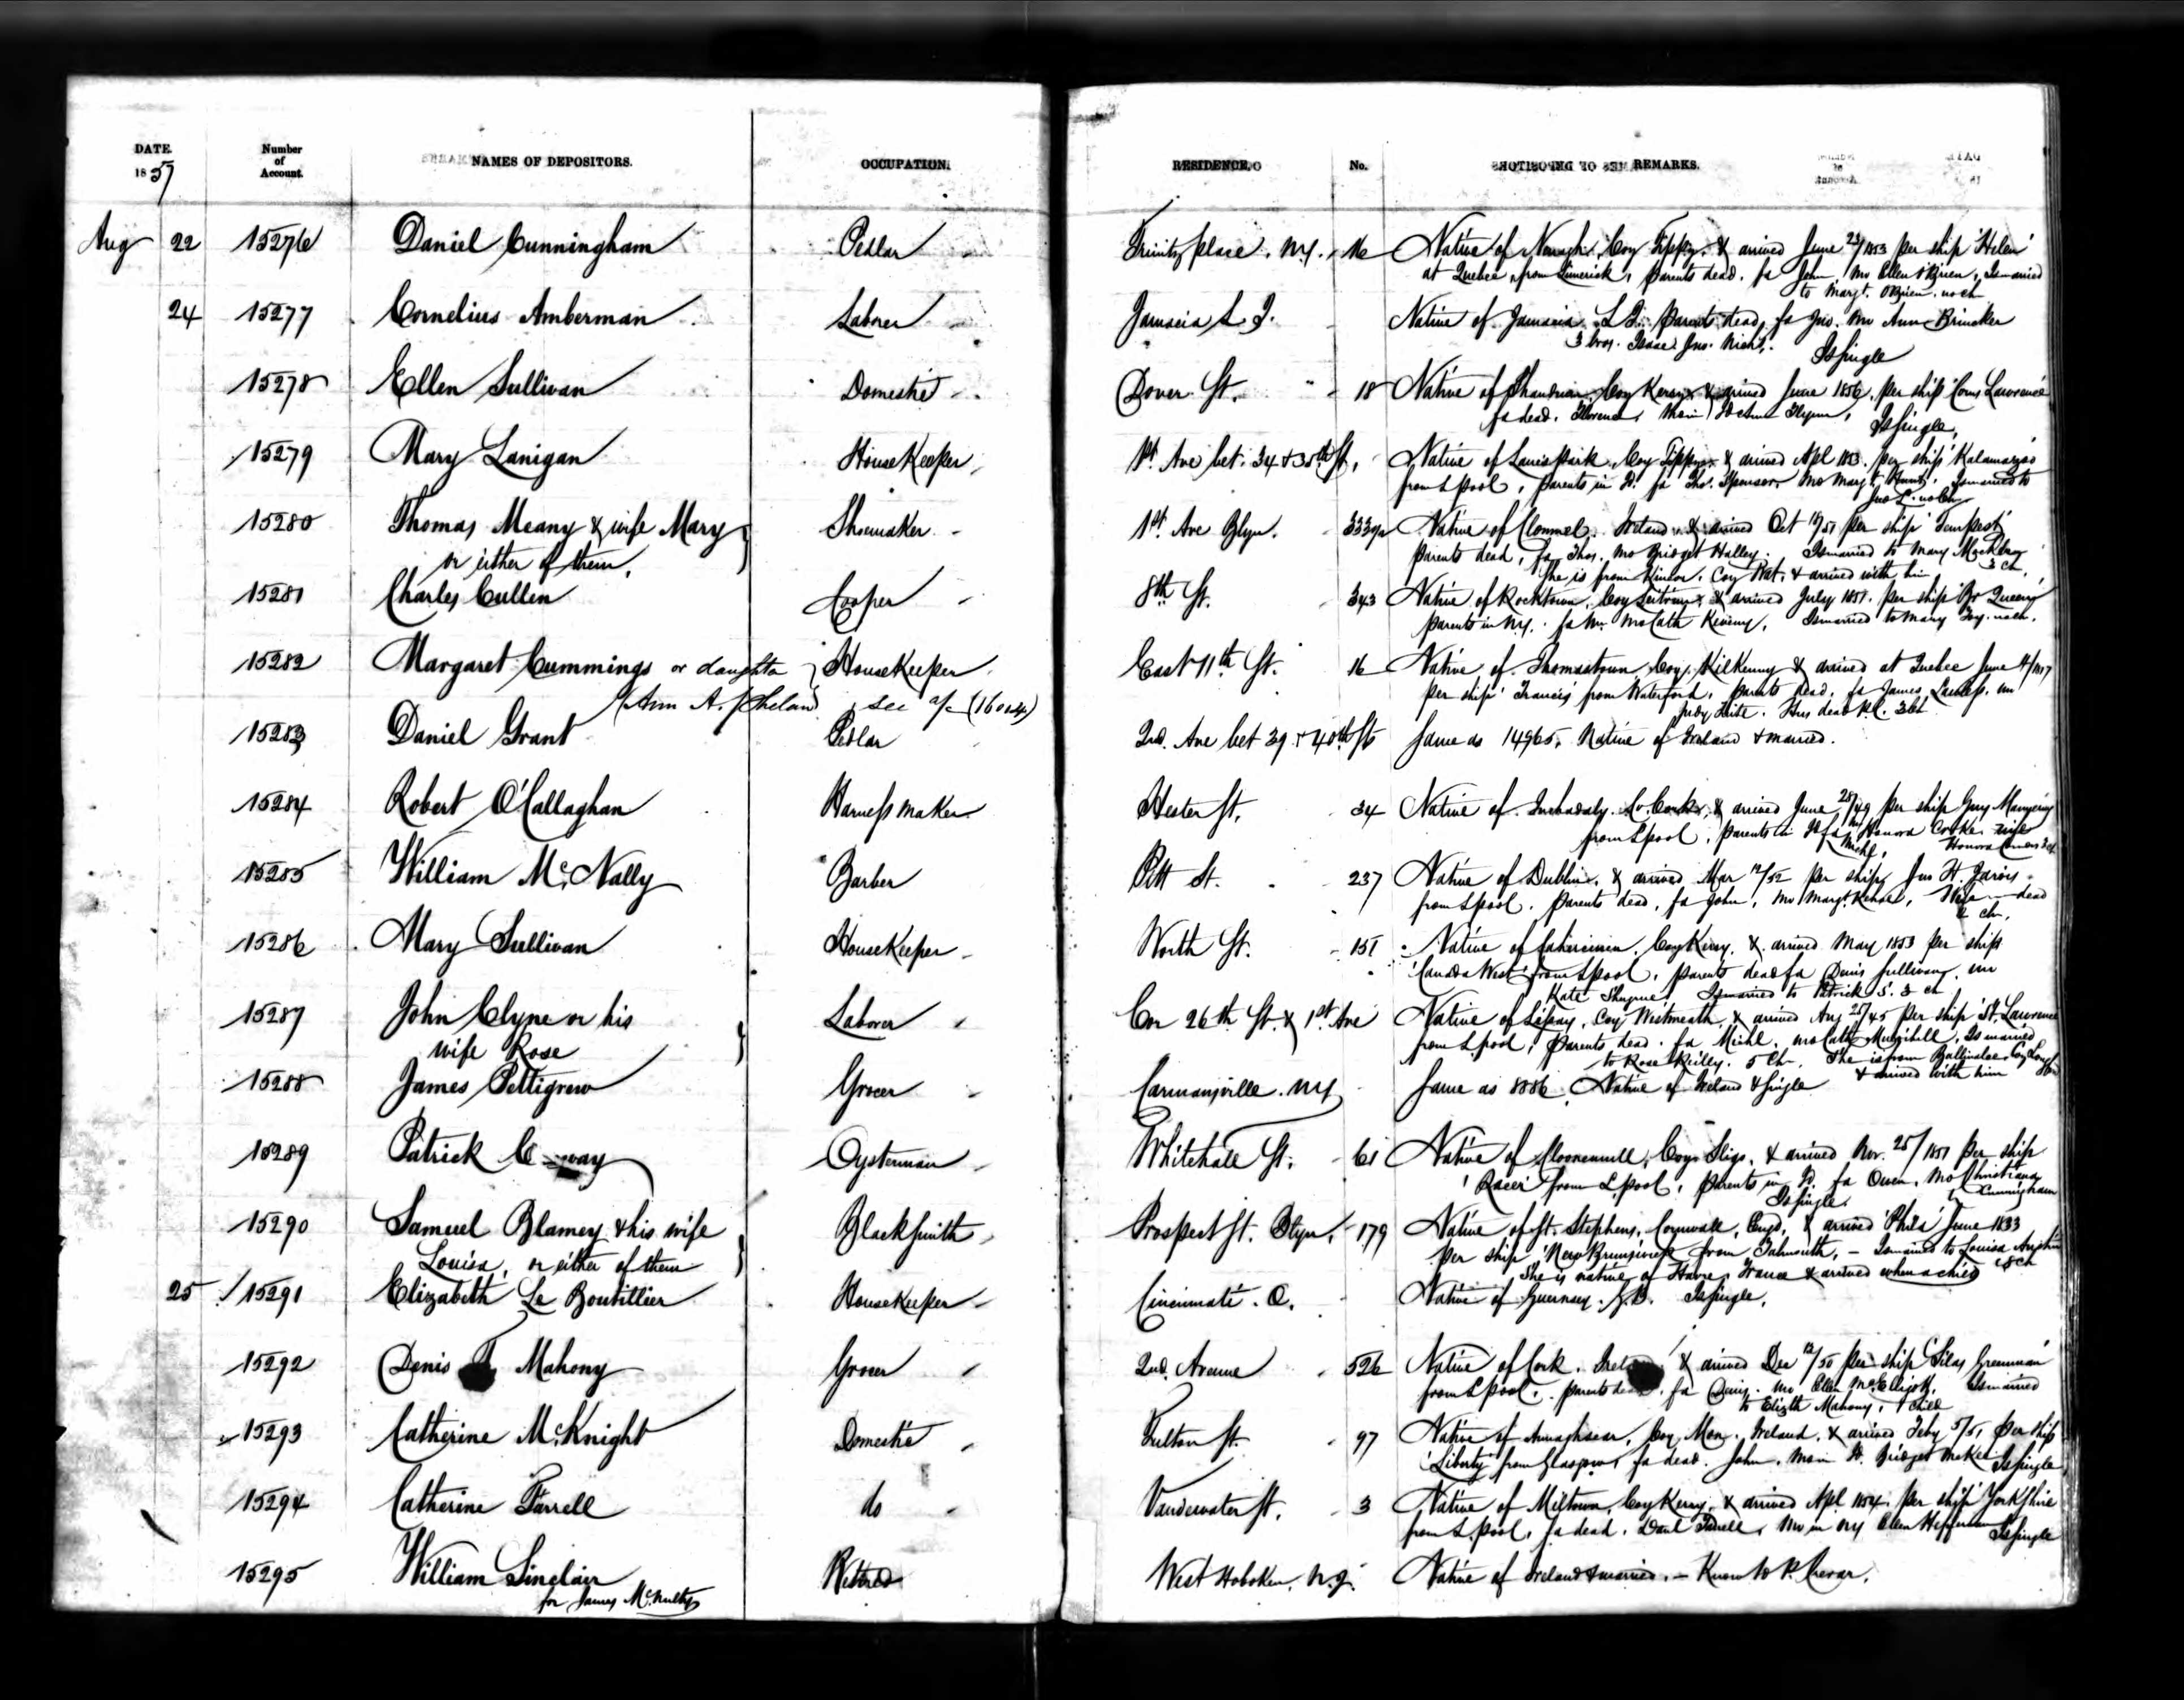 DATE. Number of Account. NAMES OF DEPOSITORS. OCCUPATION. RESIDENCE. No. REMARKS.
1857
Aug 22 15276 Daniel Cunningham Pedlar Trinity place. N.Y. 16 Native of Nenagh, Coy Tippy. & arrived June 23/1853 per ship 'Helen'
at Quebec from Limerick, parents dead. fa John, mo Ellen O'Brien, Is married
to Margt. O'Brien. no ch
24 15277 Cornelius Amberman Laborer Jamaica L.I. Native of Jamaica L.I. parents dead, fa Jno. mo Ann Brincker
3 bros. Isaac Jno. Nichs. Is single
15278 Ellen Sullivan Domestic Dover St. 18 Native of Coy Kerry & arrived June 1856. per ship 'Corns Lawrence'
fa dead. Florence, Mo in Id Ann Flynn, Is single,
15279 Mary Lanigan HouseKeeper 1st. Ave bet. 34 & 35th St. Native of Coy Tippy & arrived Apl 1853. per ship 'Kalamazoo'
from Lpool, parents in Id. fa Tho. Spenser, mo Margt. Is married to
Jno L. no ch
15280 Thomas Meany & wife Mary Shoemaker 1st. Ave Blyn. 333 1/2 Native of Clonmel. Ireland & arrived Oct /51 per ship 'Tempest'
or either of them. parents dead, fa Thos. mo Bridget Halley. Is married to Mary
She is from Coy Wat. & arrived with him 3 ch.
15281 Charles Cullen Cooper 8th St. 343 Native of Rocktown, Coy Leitrim, & arrived July 1851. per ship Queen
parents in N.Y. fa Wm. mo Cath Is married to Mary no ch.
15282 Margaret Cummings or daughter HouseKeeper East 11th St. 16 Native of Thomastown, Coy. KilKenny & arrived at Quebec June
(Ann A. Phelan) see a/c (16024) per ship 'Francis' from Waterford, parents dead. fa James Lawless, mo
Judy Hus dead 3 ch
15283 Daniel Grant Pedlar 2nd. Ave bet 39 & 40th Sts Same as 14965. Native of Ireland & married.
15284 Robert O'Callaghan Harness maker Hester St. 34 Native of Co. Cork, & arrived June 28/49 per ship Guy Mannering
from Lpool, parents in Id fa Michl, mo Honora Cooke. wife
Honora
15285 William McNally Barber Pitt St. 237 Native of Dublin. & arrived Mar 12/52 per ship, Jno H. Jarvis
from Lpool. parents dead, fa John, mo Margt. Wife dead
2 ch,
15286 Mary Sullivan HouseKeeper Worth St. 151 Native of Coy Kerry. & arrived May 1853 per ship
'Canada West' from Lpool, parents dead fa Denis Sullivan, mo
Kate Is married to Patrick S. 3 ch
15287 John Clyne or his Laborer Cor 26th St. & 1st. Ave Native of Coy Westmeath, & arrived Aug 25/45 per ship 'St. Lawrence'
wife Rose from Lpool, parents dead. fa Michl. mo Cath Is married
to Rose Reilly. 5 ch. She is from Ballinalee Coy Longford
& arrived with him
15288 James Pettigrew Grocer Carmansville. N.Y Same as 8886. Native of Ireland & single
15289 Patrick Oysterman Whitehall St. 61 Native of Coy Sligo, & arrived Nov. 25/1851 per ship
'Racer' from Lpool, parents in Id. fa Owen, mo Christiana
Cunningham Is single.
15290 Samuel Blamey & his wife Blacksmith Prospect St. Blyn. 179 Native of St. Stephens, Cornwall, Engd, & arrived 'Phila' June 1833
Louisa, or either of them per ship 'New Brunswick' from Falmouth, - Is married to Louisa
She is native of Havre, France & arrived when a child
25 15291 Elizabeth Le Boutillier HouseKeeper Cincinnati. O. Native of Guernsey. G.B. Is single.
15292 Denis Mahony Grocer 2nd. Avenue 526 Native of Cork. Ireland & arrived Dec 12/50 per ship 'Silas Greenman'
from Lpool. parents dead. fa Denis. mo Ellen McElligott. Is married
to Elizth Mahony, 1 child
15293 Catherine McKnight Domestic Fulton St. 97 Native of Coy Mon. Ireland. & arrived Feby 5/51 per ship
'Liberty' from Glasgow, fa dead. John, mo in Id. Bridget McKee Is single
15294 Catherine Farrell do Vandewater St. 3 Native of Miltown, Coy Kerry, & arrived Apl 1854. per ship 'Yorkshire'
from Lpool. fa dead. Danl Farrell, mo in NY Ellen Heffernan Is single
15295 William Sinclair Retired West Hoboken, N.J. Native of Ireland & married. - Know to P. Crerar.
for James McNulty